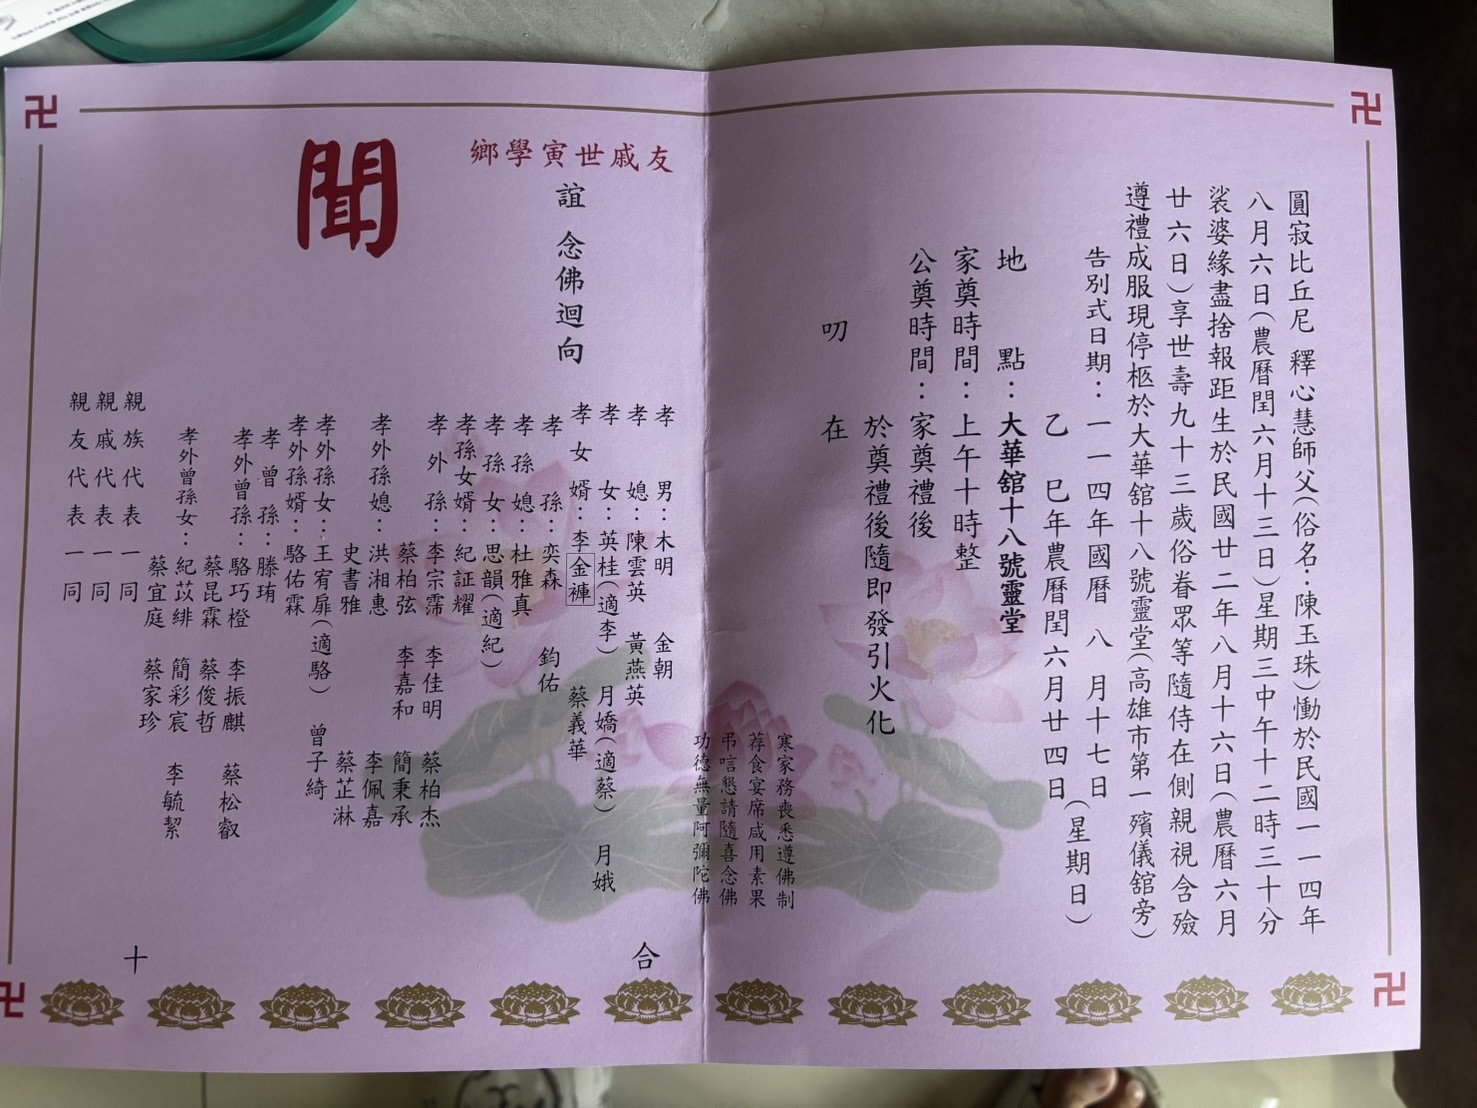 圓寂比丘尼 釋心慧師父(俗名:陳玉珠)慟於民國一一四年
八月六日(農曆閏六月十三日)星期三中午十二時三十分
裟婆緣盡捨報距生於民國廿二年八月十六日(農曆六月
廿六日)享世壽九十三歲俗眷眾等隨侍在側親視含殮
遵禮成服現停柩於大華舘十八號靈堂(高雄市第一殯儀舘旁)
告別式日期:一一四年國曆 八 月十七日
乙 巳年農曆閏六月廿四日
(星期日)
地 點:大華舘十八號靈堂
家奠時間:上午十時整
公奠時間:家奠禮後
於奠禮後隨即發引火化
叨 在
寒家務喪悉遵佛制
荐食宴席咸用素果
弔唁懇請隨喜念佛
功德無量阿彌陀佛
鄉學寅世戚友
誼 念佛迴向
聞
孝 男:木明 金朝
孝 媳:陳雲英 黃燕英
孝 女:英桂(適李) 月嬌(適蔡) 月娥
孝女婿:李金褌 蔡義華
孝 孫:奕森 鈞佑
孝孫媳:杜雅真
孝孫女:思韻(適紀)
孝孫女婿:紀証耀
孝外孫:李宗霈 李佳明 蔡柏杰
蔡柏弦 李嘉和 簡秉承
孝外孫媳:洪湘惠 李佩嘉
史書雅 蔡芷淋
孝外孫女:王宥扉(適駱) 曾子綺
孝外孫婿:駱佑霖
孝曾孫:滕珛
孝外曾孫:駱巧橙 李振麒 蔡松叡
蔡昆霖 蔡俊哲
孝外曾孫女:紀苡緋 簡彩宸 李毓絜
蔡宜庭 蔡家珍
親族代表一同
親戚代表一同
親友代表一同
合 十